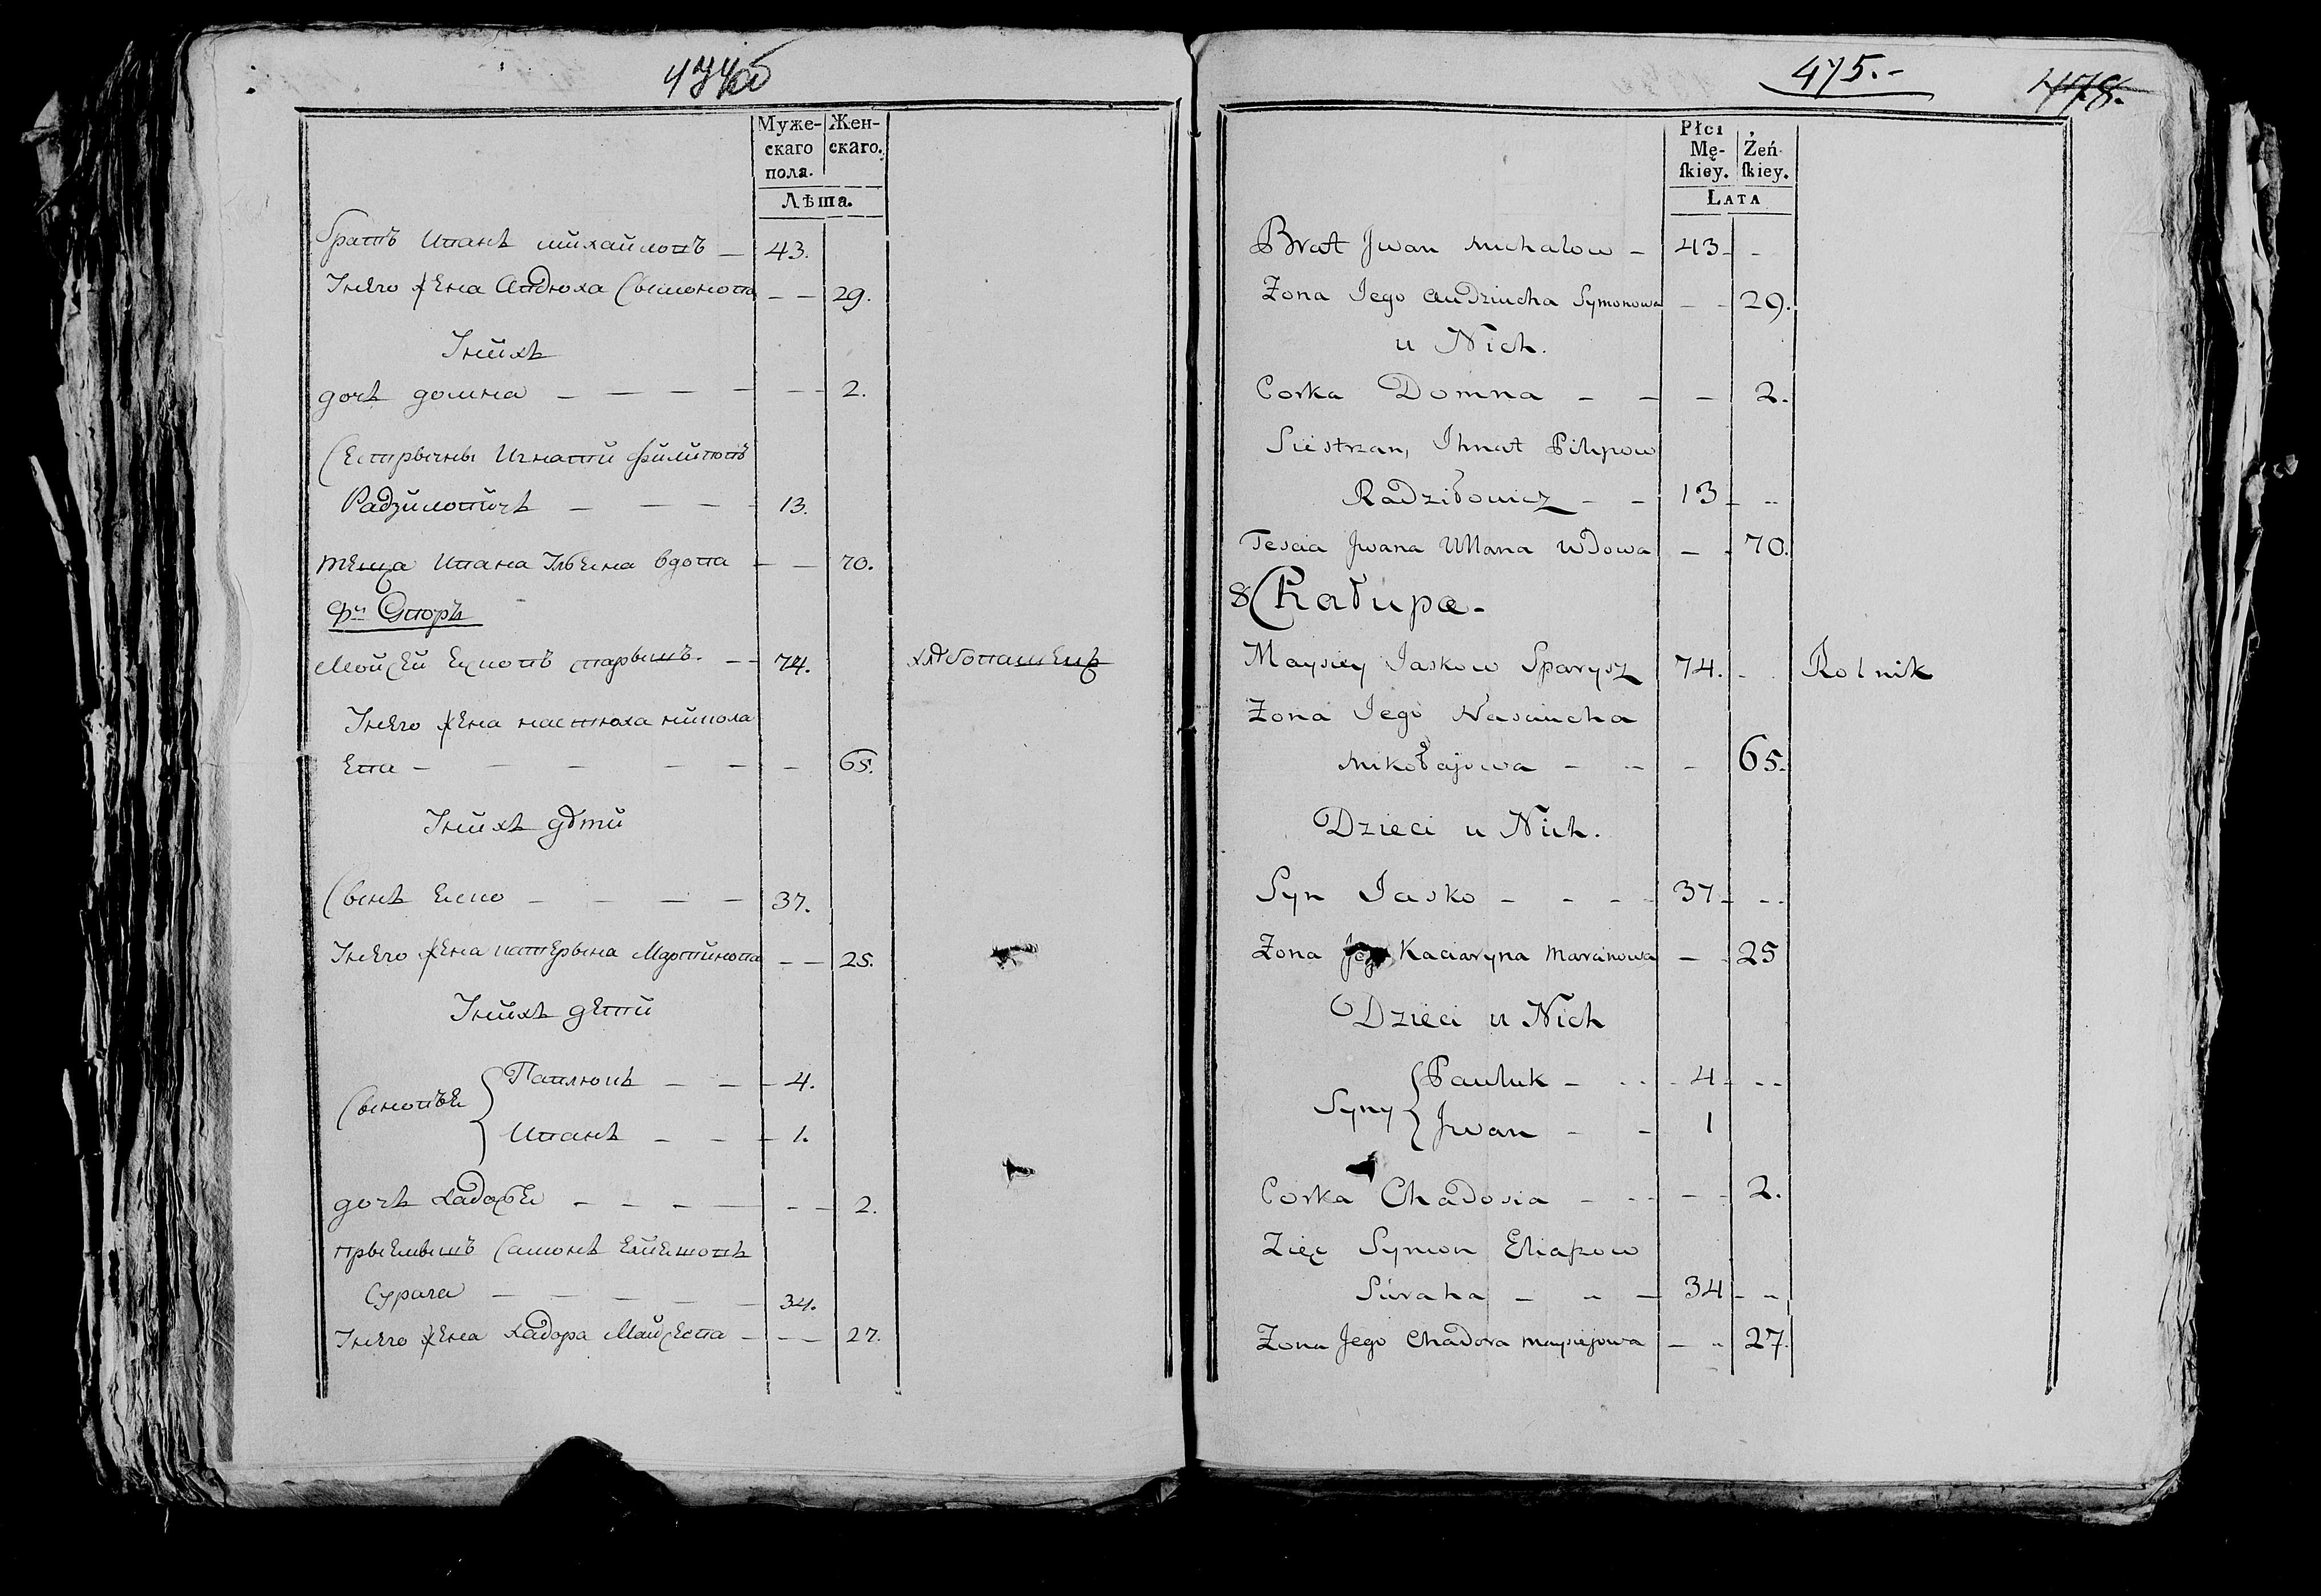 474об
Муже- Жен-
скаго скаго.
пола.
Лѣта.
братъ иванъ михайловъ — 43.
Унего жена авдюха сымонова — — 29.
Унихъ
дочь домна — — — — — — 2.
сестрычны игнатй филиповъ
Радзиловичъ — — — — 13.
теща ивана Ульяна вдова — — 70.
Мойсей есковъ спарышъ. — — 74. хлѣбопашецъ
Унего жена настюха никола
ева — — — — — — — 65.
Унихъ дѣти
сынъ еско — — — — 37.
Унего жена катерына Мартинова — — 25.
Унихъ дети
сыновъе Павлюкъ — — — 4.
иванъ — — — 1.
дочь хадосье — — — — — — 2.
прыемышъ самонъ
сурага — — — — — 34.
Унего жена хадора Майсеева — — — 27.
475.-
478.
Płci Żeń
Mę- skiey.
skiey.
LATA
Brat Jwan Michałow - 43 - -
Zona Jego Audziucha Symonowa - - 29.
u Nich.
Corka Domna - - - 2.
Siestrzan, Ihnat Pilipow
Radziłowicz - - 13 - -
Tescia Jwana Ullana wdowa - - 70.
8 Chałupa.
Maysiey Jaskow Sparysz 74. - Rolnik
Zona Jego Nasciucha
Mikołajowa - - - 65.
Dzieci u Nich.
Syn Jasko - - - - 37 - - -
Zona Jego Kaciaryna Marcinowa - - 25
Dzieci u Nich
Syny Pauluk - - - - 4 - - -
Jwan - - 1
Corka Chadosia - - - - - 2.
Zięc Symon Eliaszow
Suraha - - - 34 - -
Zona Jego Chadora Maysiejowa - - 27.